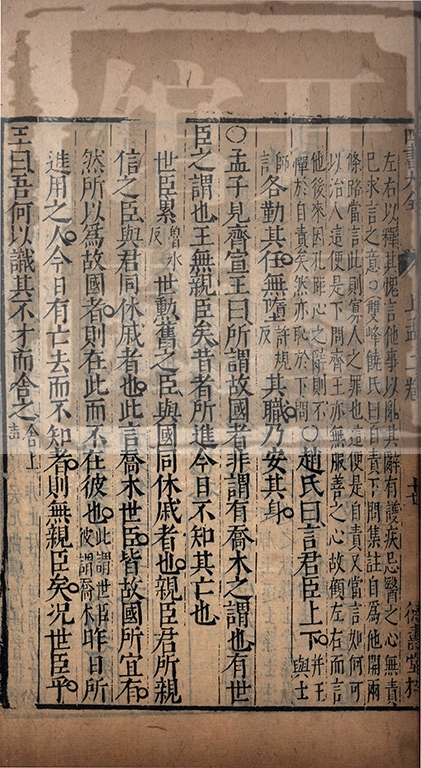 四書大全 上孟二卷
左右以釋其愧言他事以亂其辭有護疾忌醫之心無責
已求言之意○雙峰饒氏曰自責下問集註自為他開兩
條路當言此則寡人之罪也這便是自責又當言如何可
以治人這便是下問齊王亦無服善之心故顧左右而言
他後來因孔距心之辭則不憚於自責矣然亦恥於下問○趙氏曰言君臣上下并王與士
師各勤其任無墮許規反其職乃安其身
○孟子見齊宣王曰所謂故國者非謂有喬木之謂也有世
臣之謂也王無親臣矣昔者所進今日不知其亡也
世臣累魯水反世勳舊之臣與國同休戚者也親臣君所親
信之臣與君同休戚者也此言喬木世臣皆故國所宜有
然所以爲故國者則在此而不在彼也此謂世臣彼謂喬木昨日所
進用之人今日有亡去而不知者則無親臣矣况世臣乎
王曰吾何以識其不才而舍之舍上